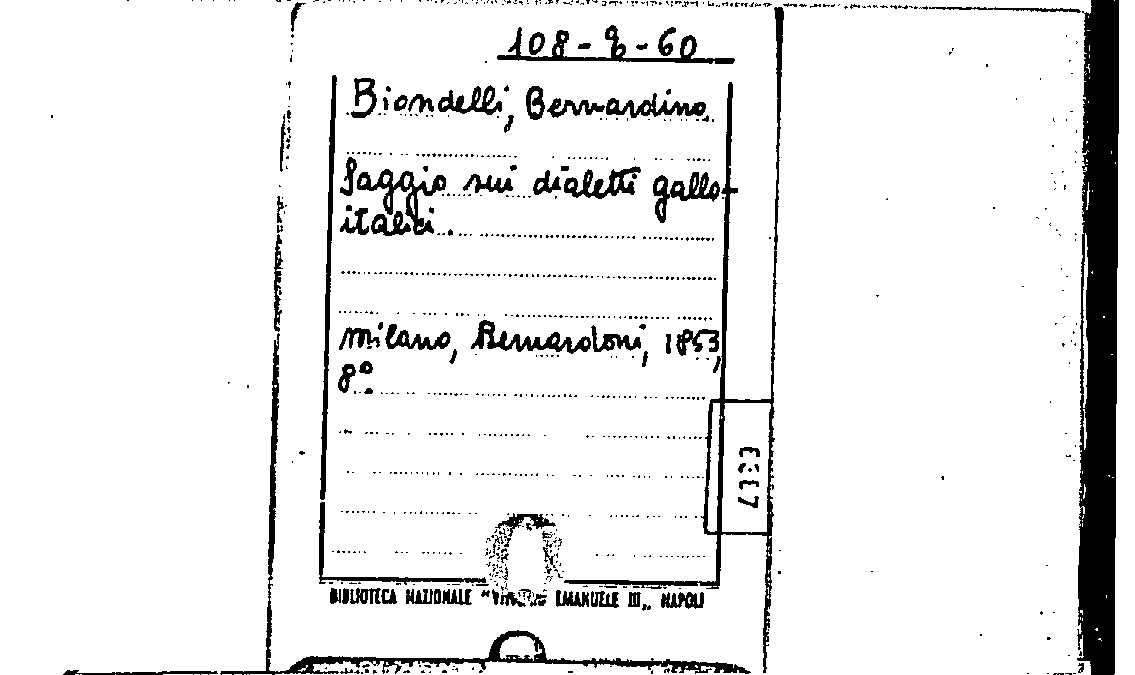 108-9-60
Biondelli, Bernardino.
Saggio sui dialetti gallo-
italici.
Milano, Bernardoni, 1853,
8º.
BIBLIOTECA NAZIONALE " EMANUELE III„ NAPOLI